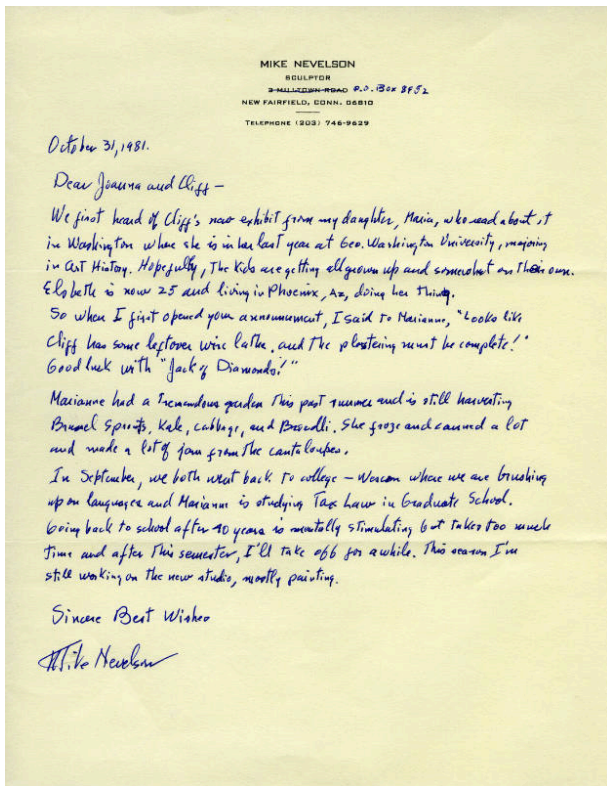 MIKE NEVELSON
SCULPTOR
3 MILLTOWN ROAD P.O. Box 8952
NEW FAIRFIELD, CONN. 06810
TELEPHONE (203) 746-9629
October 31, 1981.
Dear Joanna and Cliff —
We first heard of Cliff's new exhibit from my daughter, Maria, who read about it
in Washington where she is in her last year at Geo. Washington University, majoring
in Art History. Hopefully, The Kids are getting all grown up and somewhat on their own.
Elsbeth is now 25 and living in Phoenix, Az, doing her thing.
So when I first opened your announcement, I said to Marianne, "Looks like
Cliff has some leftover wire lathe, and the plastering must be complete!"
Good luck with "Jack of Diamonds!"
Marianne had a Tremendous garden This past summer and is still harvesting
Brussel Sprouts, Kale, cabbage, and Broccolli. She froze and canned a lot
and made a lot of jam from the cantaloupes.
In September, we both went back to college – Wescon where we are brushing
up on languages and Marianne is studying Tax Law in Graduate School.
Going back to school after 40 years is mentally stimulating but takes too much
time and after This semester, I'll take off for awhile. This season I'm
still working on the new studio, mostly painting.
Sincere Best Wishes
Mike Nevelson